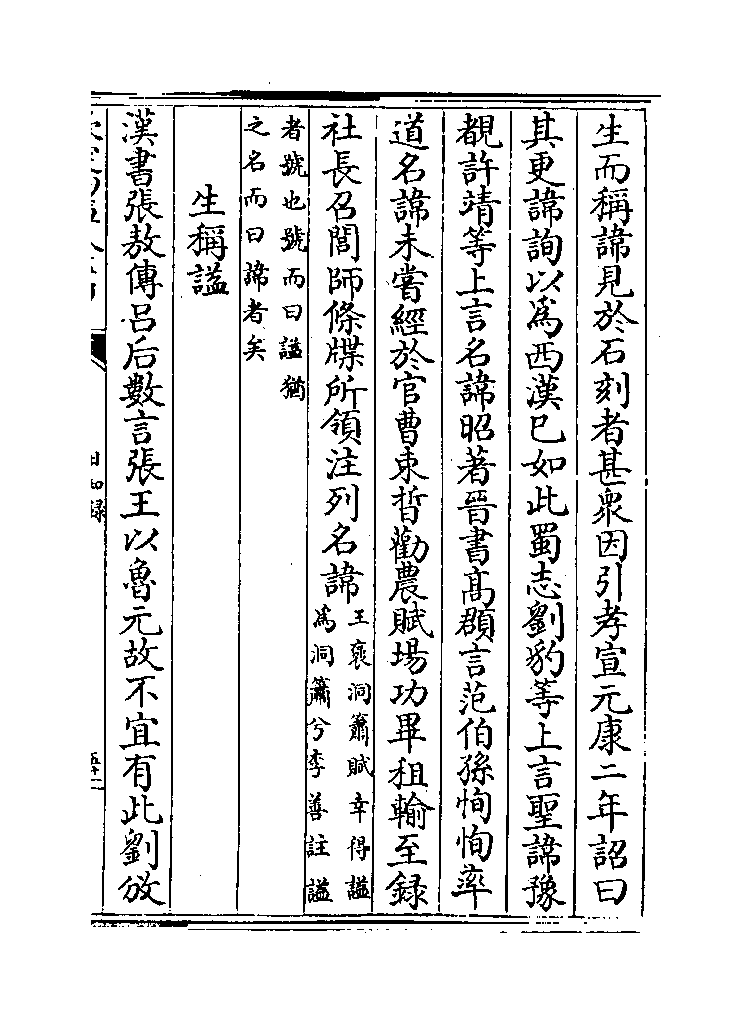 生而稱諱見於石刻者甚衆因引孝宣元康二年詔曰
其更諱詢以爲西漢已如此蜀志劉豹等上言聖諱豫
覩許靖等上言名諱昭著晉書高頵言范伯孫恂恂率
道名諱未嘗經於官曹束晳勸農賦場功畢租輸至録
社長召閭師條牒所領注列名諱王襃洞簫賦幸得謚
爲洞簫兮李善註謚
者號也號而曰謚猶
之名而曰諱者矣
生稱謚
漢書張敖傳吕后數言張王以魯元故不宜有此劉攽
日知録